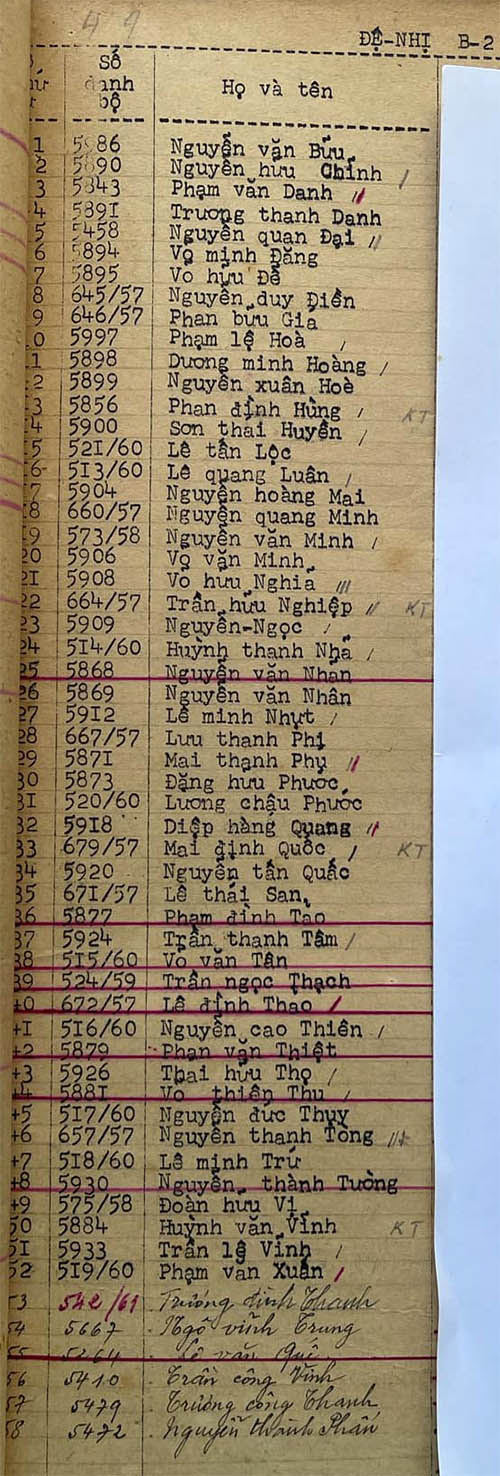 49
ĐỆ-NHỊ B-2
Số
danh
bộ
Họ và tên
1 5986 Nguyễn văn Bửu
2 5890 Nguyễn hưu Chỉnh /
3 5843 Phạm văn Danh //
4 5891 Trương thanh Danh
5 5458 Nguyễn quan Đại //
6 5894 Vọ minh Đăng
7 5895 Vo hữu Đề
8 645/57 Nguyễn duy Điền
9 646/57 Phan bửu Gia
0 5997 Phạm lệ Hoà /
1 5898 Dương minh Hoàng /
2 5899 Nguyễn xuân Hoè
3 5856 Phan định Hùng / KT
4 5900 Sơn thai Huyền /
5 521/60 Lê tấn Lộc
6 513/60 Lê quang Luân /
7 5904 Nguyễn hoàng Mai
8 660/57 Nguyễn quang Minh
9 573/58 Nguyễn văn Minh /
20 5906 Vọ văn Minh
21 5908 Vo hưu Nghia ///
22 664/57 Trần hữu Nghiệp // KT
23 5909 Nguyễn-Ngọc /
24 514/60 Huỳnh thanh Nhã /
25 5868 Nguyễn văn Nhan
26 5869 Nguyễn văn Nhân
27 5912 Lê minh Nhựt /
28 667/57 Lưu thanh Phị
29 5871 Mai thạnh Phụ //
30 5873 Đặng hưu Phước
31 520/60 Lương châu Phước
32 5918 Diệp hàng Quang //
33 679/57 Mai định Quốc / KT
34 5920 Nguyễn tấn Quấc
35 671/57 Lê thái San
36 5877 Phạm đình Tạo
37 5924 Trần thanh Tâm /
38 515/60 Vỏ văn Tân
39 524/59 Trần ngọc Thạch
40 672/57 Lê định Thao /
41 516/60 Nguyễn cao Thiên /
42 5879 Phan văn Thiệt
43 5926 Thai hữu Thọ /
44 5881 Vo thiện Thu /
45 517/60 Nguyễn đức Thụy
46 657/57 Nguyễn thanh Tòng //
47 518/60 Lê minh Trứ
48 5930 Nguyễn thành Tường
49 575/58 Đoàn hưu Vị
50 5884 Huỳnh văn Vinh KT
51 5933 Trần lệ Vinh /
52 519/60 Phạm văn Xuân /
53 542/61 Trương đình Thanh
54 5667 Ngô vĩnh Trung
55 5264 Lê văn Quê
56 5410 Trần công Vinh
57 5479 Trương công Thanh
58 5472 Nguyễn thành Phấn